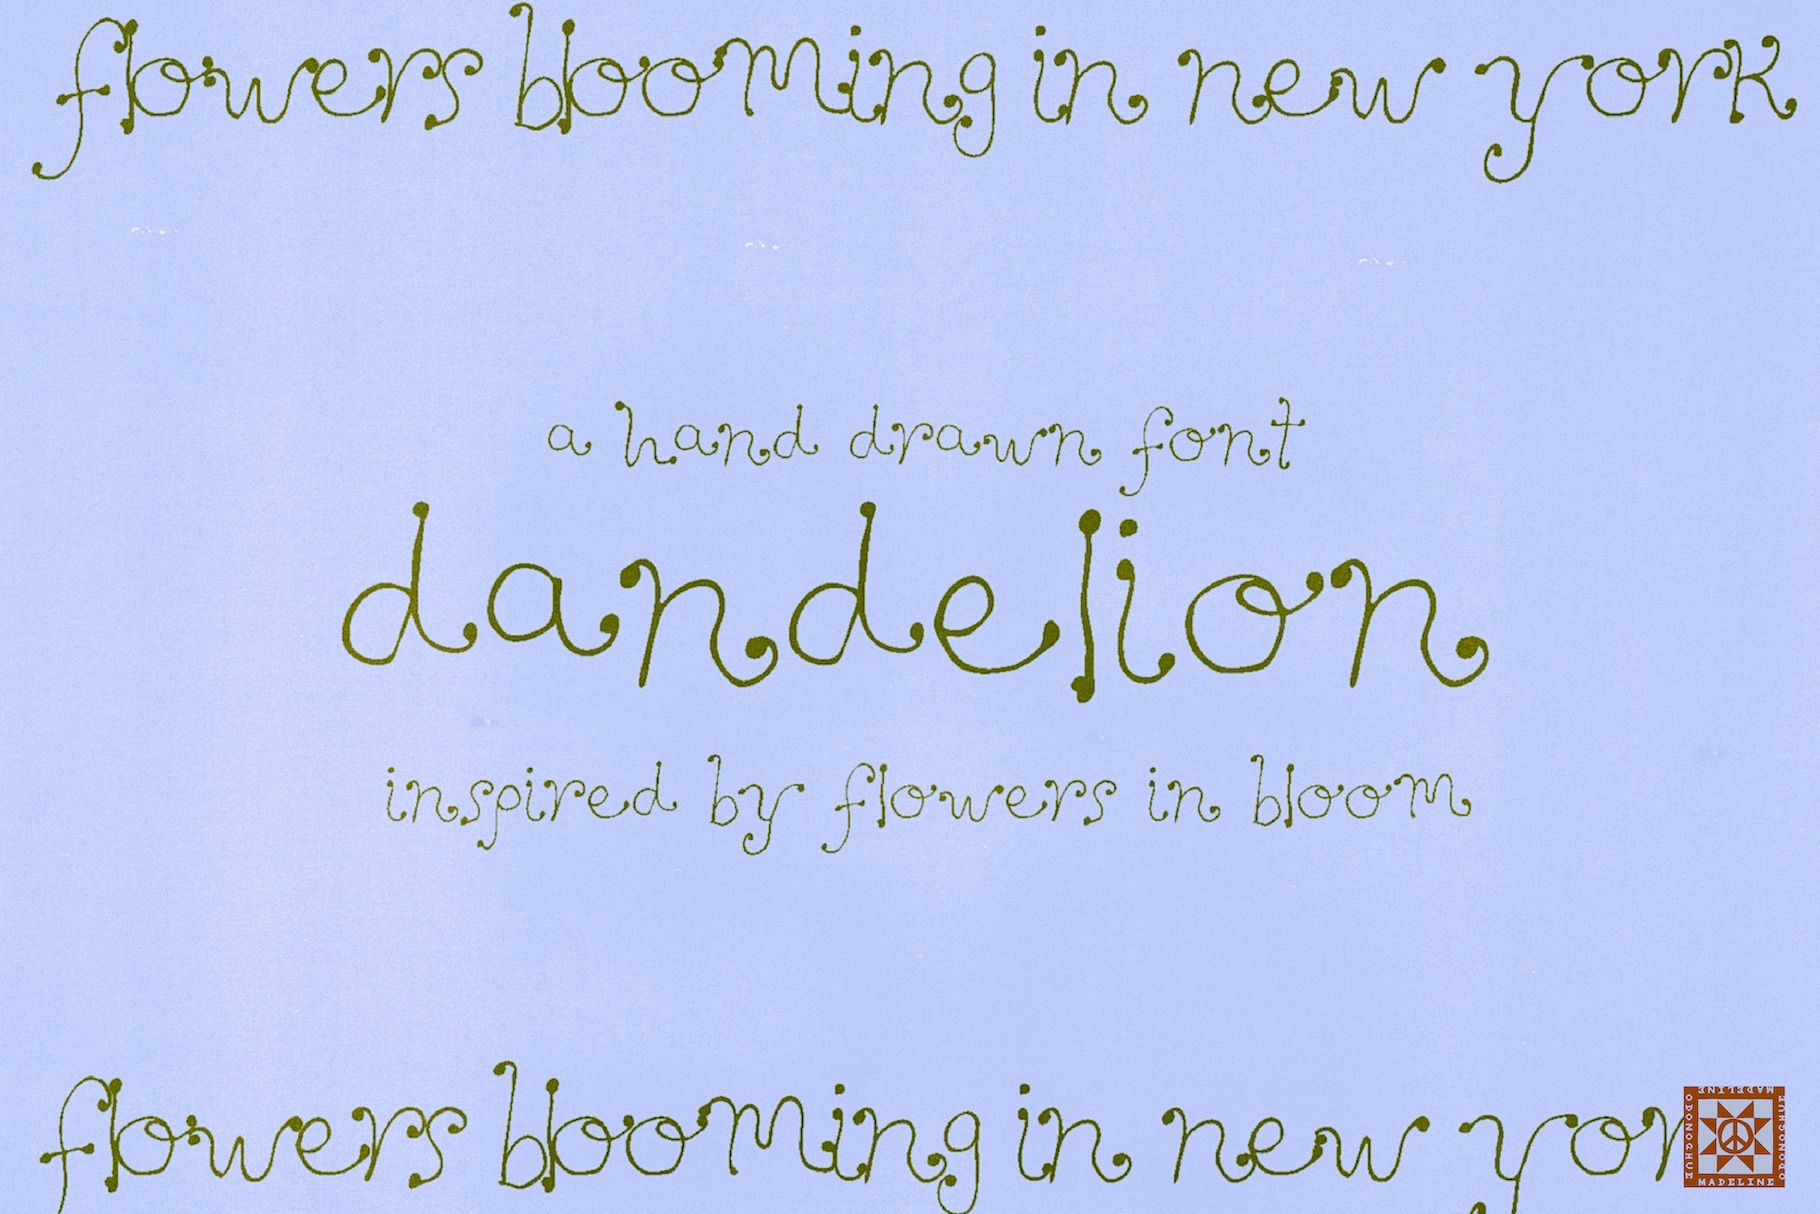 flowers blooming in new york
a hand drawn font
dandelion
inspired by flowers in bloom
flowers blooming in new yor
MADELINE
ODONOGHUE
ODONOGHUE
MADELINE